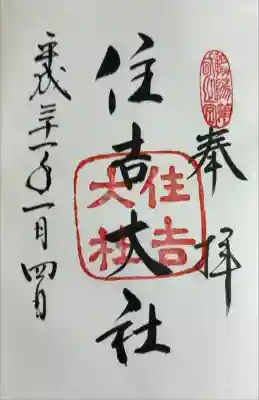 奉拝
住吉大社
住吉大社
平成三十一年一月四日